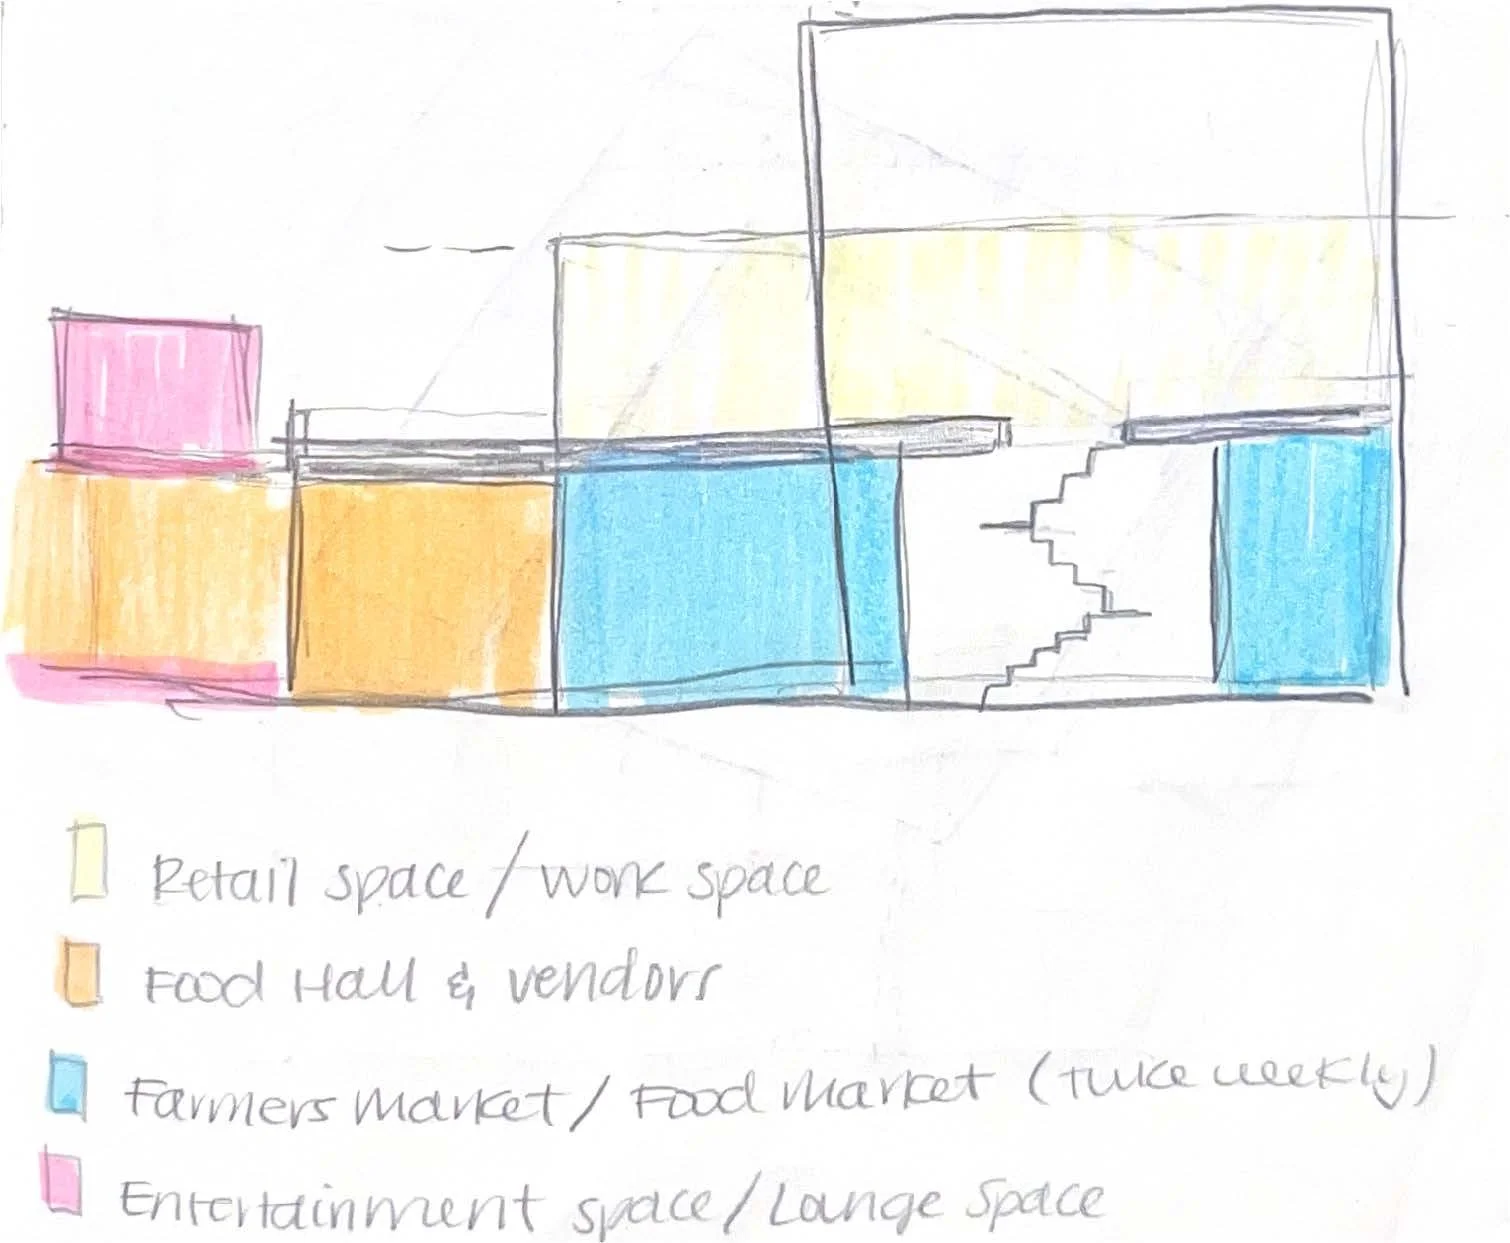 Retail space / work space
Food Hall & vendors
Farmers Market / Food Market (twice weekly)
Entertainment space / Lounge Space